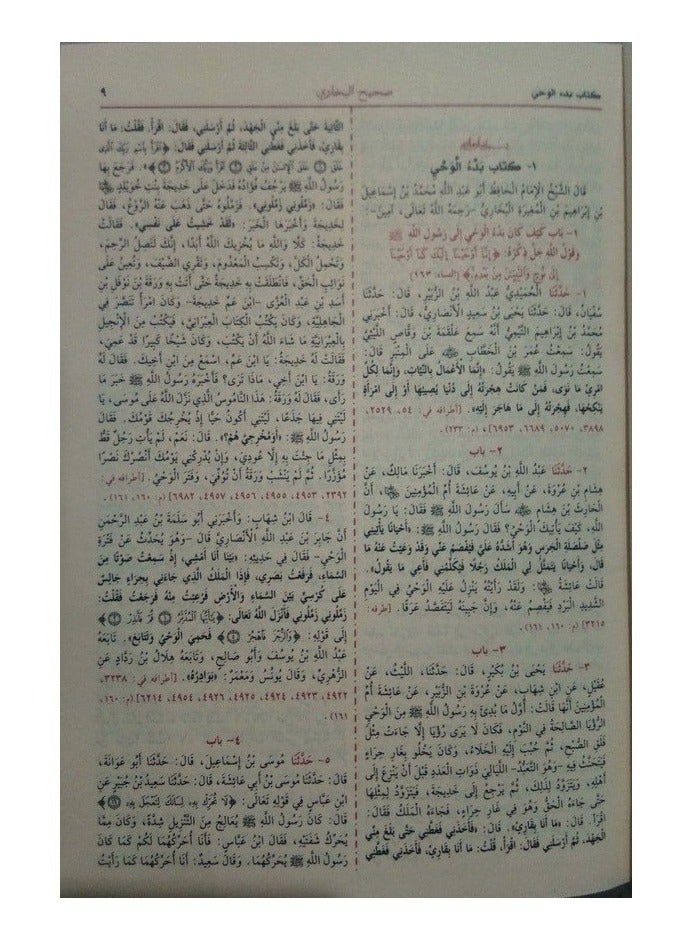 كتاب بدء الوحي
صحيح البخاري
٩
١- كِتَابُ بَدْءِ الْوَحْيِ
قَالَ الشَّيْخُ الْإِمَامُ الْحَافِظُ أَبُو عَبْدِ اللَّهِ مُحَمَّدُ بْنُ إِسْمَاعِيلَ
بْنِ إِبْرَاهِيمَ بْنِ الْمُغِيرَةِ الْبُخَارِيُّ -رَحِمَهُ اللَّهُ تَعَالَى، آمِينَ-:
١- بَابٌ كَيْفَ كَانَ بَدْءُ الْوَحْيِ إِلَى رَسُولِ اللَّهِ ﷺ
وَقَوْلُ اللَّهِ جَلَّ ذِكْرُهُ: ﴿إِنَّا أَوْحَيْنَا إِلَيْكَ كَمَا أَوْحَيْنَا
إِلَى نُوحٍ وَالنَّبِيِّينَ مِنْ بَعْدِهِ﴾ [النساء: ١٦٣]
١- حَدَّثَنَا الْحُمَيْدِيُّ عَبْدُ اللَّهِ بْنُ الزُّبَيْرِ، قَالَ: حَدَّثَنَا
سُفْيَانُ، قَالَ: حَدَّثَنَا يَحْيَى بْنُ سَعِيدٍ الْأَنْصَارِيُّ، قَالَ: أَخْبَرَنِي
مُحَمَّدُ بْنُ إِبْرَاهِيمَ التَّيْمِيُّ أَنَّهُ سَمِعَ عَلْقَمَةَ بْنَ وَقَّاصٍ اللَّيْثِيَّ
يَقُولُ: سَمِعْتُ عُمَرَ بْنَ الْخَطَّابِ ﵁ عَلَى الْمِنْبَرِ قَالَ:
سَمِعْتُ رَسُولَ اللَّهِ ﷺ يَقُولُ: «إِنَّمَا الْأَعْمَالُ بِالنِّيَّاتِ، وَإِنَّمَا لِكُلِّ
امْرِئٍ مَا نَوَى، فَمَنْ كَانَتْ هِجْرَتُهُ إِلَى دُنْيَا يُصِيبُهَا أَوْ إِلَى امْرَأَةٍ
يَنْكِحُهَا، فَهِجْرَتُهُ إِلَى مَا هَاجَرَ إِلَيْهِ». [أطرافه في: ٥٤، ٢٥٢٩،
٣٨٩٨، ٥٠٧٠، ٦٦٨٩، ٦٩٥٣]، [م: ٢٣٣].
٢- باب
٢- حَدَّثَنَا عَبْدُ اللَّهِ بْنُ يُوسُفَ، قَالَ: أَخْبَرَنَا مَالِكٌ، عَنْ
هِشَامِ بْنِ عُرْوَةَ، عَنْ أَبِيهِ، عَنْ عَائِشَةَ أُمِّ الْمُؤْمِنِينَ، أَنَّ
الْحَارِثَ بْنَ هِشَامٍ سَأَلَ رَسُولَ اللَّهِ ﷺ، فَقَالَ: يَا رَسُولَ
اللَّهِ، كَيْفَ يَأْتِيكَ الْوَحْيُ؟ فَقَالَ رَسُولُ اللَّهِ ﷺ: «أَحْيَانًا يَأْتِينِي
مِثْلَ صَلْصَلَةِ الْجَرَسِ وَهُوَ أَشَدُّهُ عَلَيَّ فَيَفْصِمُ عَنِّي وَقَدْ وَعَيْتُ عَنْهُ مَا
قَالَ، وَأَحْيَانًا يَتَمَثَّلُ لِي الْمَلَكُ رَجُلًا فَيُكَلِّمُنِي فَأَعِي مَا يَقُولُ».
قَالَتْ عَائِشَةُ: وَلَقَدْ رَأَيْتُهُ يَنْزِلُ عَلَيْهِ الْوَحْيُ فِي الْيَوْمِ
الشَّدِيدِ الْبَرْدِ فَيَفْصِمُ عَنْهُ، وَإِنَّ جَبِينَهُ لَيَتَفَصَّدُ عَرَقًا. [طرفه:
٣٢١٥] [م: ١٦٠، ١٦١].
٣- باب
٣- حَدَّثَنَا يَحْيَى بْنُ بُكَيْرٍ، قَالَ: حَدَّثَنَا اللَّيْثُ، عَنْ
عُقَيْلٍ، عَنِ ابْنِ شِهَابٍ، عَنْ عُرْوَةَ بْنِ الزُّبَيْرِ، عَنْ عَائِشَةَ أُمِّ
الْمُؤْمِنِينَ أَنَّهَا قَالَتْ: أَوَّلُ مَا بُدِئَ بِهِ رَسُولُ اللَّهِ ﷺ مِنَ الْوَحْيِ
الرُّؤْيَا الصَّالِحَةُ فِي النَّوْمِ، فَكَانَ لَا يَرَى رُؤْيَا إِلَّا جَاءَتْ مِثْلَ
فَلَقِ الصُّبْحِ، ثُمَّ حُبِّبَ إِلَيْهِ الْخَلَاءُ، وَكَانَ يَخْلُو بِغَارِ حِرَاءٍ
فَيَتَحَنَّثُ فِيهِ -وَهُوَ التَّعَبُّدُ- اللَّيَالِيَ ذَوَاتِ الْعَدَدِ قَبْلَ أَنْ يَنْزِعَ إِلَى
أَهْلِهِ، وَيَتَزَوَّدُ لِذَلِكَ، ثُمَّ يَرْجِعُ إِلَى خَدِيجَةَ، فَيَتَزَوَّدُ لِمِثْلِهَا
حَتَّى جَاءَهُ الْحَقُّ وَهُوَ فِي غَارِ حِرَاءٍ، فَجَاءَهُ الْمَلَكُ فَقَالَ:
اقْرَأْ. قَالَ: «مَا أَنَا بِقَارِئٍ». قَالَ: «فَأَخَذَنِي فَغَطَّنِي حَتَّى بَلَغَ مِنِّي
الْجَهْدَ، ثُمَّ أَرْسَلَنِي فَقَالَ: اقْرَأْ. قُلْتُ: مَا أَنَا بِقَارِئٍ، فَأَخَذَنِي فَغَطَّنِي
الثَّانِيَةَ حَتَّى بَلَغَ مِنِّي الْجَهْدَ، ثُمَّ أَرْسَلَنِي، فَقَالَ: اقْرَأْ. فَقُلْتُ: مَا أَنَا
بِقَارِئٍ، فَأَخَذَنِي فَغَطَّنِي الثَّالِثَةَ ثُمَّ أَرْسَلَنِي، فَقَالَ: ﴿اقْرَأْ بِاسْمِ رَبِّكَ الَّذِي
خَلَقَ ۝ خَلَقَ الْإِنْسَانَ مِنْ عَلَقٍ ۝ اقْرَأْ وَرَبُّكَ الْأَكْرَمُ﴾». فَرَجَعَ بِهَا
رَسُولُ اللَّهِ ﷺ يَرْجُفُ فُؤَادُهُ فَدَخَلَ عَلَى خَدِيجَةَ بِنْتِ خُوَيْلِدٍ
فَقَالَ: «زَمِّلُونِي زَمِّلُونِي». فَزَمَّلُوهُ حَتَّى ذَهَبَ عَنْهُ الرَّوْعُ، فَقَالَ
لِخَدِيجَةَ وَأَخْبَرَهَا الْخَبَرَ: «لَقَدْ خَشِيتُ عَلَى نَفْسِي». فَقَالَتْ
خَدِيجَةُ: كَلَّا وَاللَّهِ مَا يُخْزِيكَ اللَّهُ أَبَدًا، إِنَّكَ لَتَصِلُ الرَّحِمَ،
وَتَحْمِلُ الْكَلَّ، وَتَكْسِبُ الْمَعْدُومَ، وَتَقْرِي الضَّيْفَ، وَتُعِينُ عَلَى
نَوَائِبِ الْحَقِّ، فَانْطَلَقَتْ بِهِ خَدِيجَةُ حَتَّى أَتَتْ بِهِ وَرَقَةَ بْنَ نَوْفَلِ بْنِ
أَسَدِ بْنِ عَبْدِ الْعُزَّى -ابْنَ عَمِّ خَدِيجَةَ- وَكَانَ امْرَأً تَنَصَّرَ فِي
الْجَاهِلِيَّةِ، وَكَانَ يَكْتُبُ الْكِتَابَ الْعِبْرَانِيَّ، فَيَكْتُبُ مِنَ الْإِنْجِيلِ
بِالْعِبْرَانِيَّةِ مَا شَاءَ اللَّهُ أَنْ يَكْتُبَ، وَكَانَ شَيْخًا كَبِيرًا قَدْ عَمِيَ،
فَقَالَتْ لَهُ خَدِيجَةُ: يَا ابْنَ عَمِّ، اسْمَعْ مِنَ ابْنِ أَخِيكَ. فَقَالَ لَهُ
وَرَقَةُ: يَا ابْنَ أَخِي، مَاذَا تَرَى؟ فَأَخْبَرَهُ رَسُولُ اللَّهِ ﷺ خَبَرَ مَا
رَأَى، فَقَالَ لَهُ وَرَقَةُ: هَذَا النَّامُوسُ الَّذِي نَزَّلَ اللَّهُ عَلَى مُوسَى، يَا
لَيْتَنِي فِيهَا جَذَعًا، لَيْتَنِي أَكُونُ حَيًّا إِذْ يُخْرِجُكَ قَوْمُكَ. فَقَالَ
رَسُولُ اللَّهِ ﷺ: «أَوَمُخْرِجِيَّ هُمْ؟». قَالَ: نَعَمْ، لَمْ يَأْتِ رَجُلٌ قَطُّ
بِمِثْلِ مَا جِئْتَ بِهِ إِلَّا عُودِيَ، وَإِنْ يُدْرِكْنِي يَوْمُكَ أَنْصُرْكَ نَصْرًا
مُؤَزَّرًا. ثُمَّ لَمْ يَنْشَبْ وَرَقَةُ أَنْ تُوُفِّيَ، وَفَتَرَ الْوَحْيُ. [أطرافه في:
٣٣٩٢، ٤٩٥٣، ٤٩٥٥، ٤٩٥٦، ٤٩٥٧، ٦٩٨٢] [م: ١٦٠، ١٦١].
٤- قَالَ ابْنُ شِهَابٍ: وَأَخْبَرَنِي أَبُو سَلَمَةَ بْنُ عَبْدِ الرَّحْمَنِ
أَنَّ جَابِرَ بْنَ عَبْدِ اللَّهِ الْأَنْصَارِيَّ قَالَ -وَهُوَ يُحَدِّثُ عَنْ فَتْرَةِ
الْوَحْيِ- فَقَالَ فِي حَدِيثِهِ: «بَيْنَا أَنَا أَمْشِي، إِذْ سَمِعْتُ صَوْتًا مِنَ
السَّمَاءِ، فَرَفَعْتُ بَصَرِي، فَإِذَا الْمَلَكُ الَّذِي جَاءَنِي بِحِرَاءٍ جَالِسٌ
عَلَى كُرْسِيٍّ بَيْنَ السَّمَاءِ وَالْأَرْضِ فَرُعِبْتُ مِنْهُ فَرَجَعْتُ فَقُلْتُ:
زَمِّلُونِي زَمِّلُونِي فَأَنْزَلَ اللَّهُ تَعَالَى: ﴿يَا أَيُّهَا الْمُدَّثِّرُ ۝ قُمْ فَأَنْذِرْ ۝﴾
إِلَى قَوْلِهِ: ﴿وَالرُّجْزَ فَاهْجُرْ ۝﴾ فَحَمِيَ الْوَحْيُ وَتَتَابَعَ». تَابَعَهُ
عَبْدُ اللَّهِ بْنُ يُوسُفَ وَأَبُو صَالِحٍ، وَتَابَعَهُ هِلَالُ بْنُ رَدَّادٍ عَنِ
الزُّهْرِيِّ، وَقَالَ يُونُسُ وَمَعْمَرٌ: «بَوَادِرُهُ». [أطرافه في: ٣٢٣٨،
٤٩٢٢، ٤٩٢٣، ٤٩٢٤، ٤٩٢٥، ٤٩٢٦، ٤٩٥٤، ٦٢١٤] [م: ١٦٠،
١٦١].
٤- باب
٥- حَدَّثَنَا مُوسَى بْنُ إِسْمَاعِيلَ، قَالَ: حَدَّثَنَا أَبُو عَوَانَةَ،
قَالَ: حَدَّثَنَا مُوسَى بْنُ أَبِي عَائِشَةَ، قَالَ: حَدَّثَنَا سَعِيدُ بْنُ جُبَيْرٍ عَنِ
ابْنِ عَبَّاسٍ فِي قَوْلِهِ تَعَالَى: ﴿لَا تُحَرِّكْ بِهِ لِسَانَكَ لِتَعْجَلَ بِهِ﴾،
قَالَ: كَانَ رَسُولُ اللَّهِ ﷺ يُعَالِجُ مِنَ التَّنْزِيلِ شِدَّةً، وَكَانَ مِمَّا
يُحَرِّكُ شَفَتَيْهِ، فَقَالَ ابْنُ عَبَّاسٍ: فَأَنَا أُحَرِّكُهُمَا لَكُمْ كَمَا كَانَ
رَسُولُ اللَّهِ ﷺ يُحَرِّكُهُمَا. وَقَالَ سَعِيدٌ: أَنَا أُحَرِّكُهُمَا كَمَا رَأَيْتُ